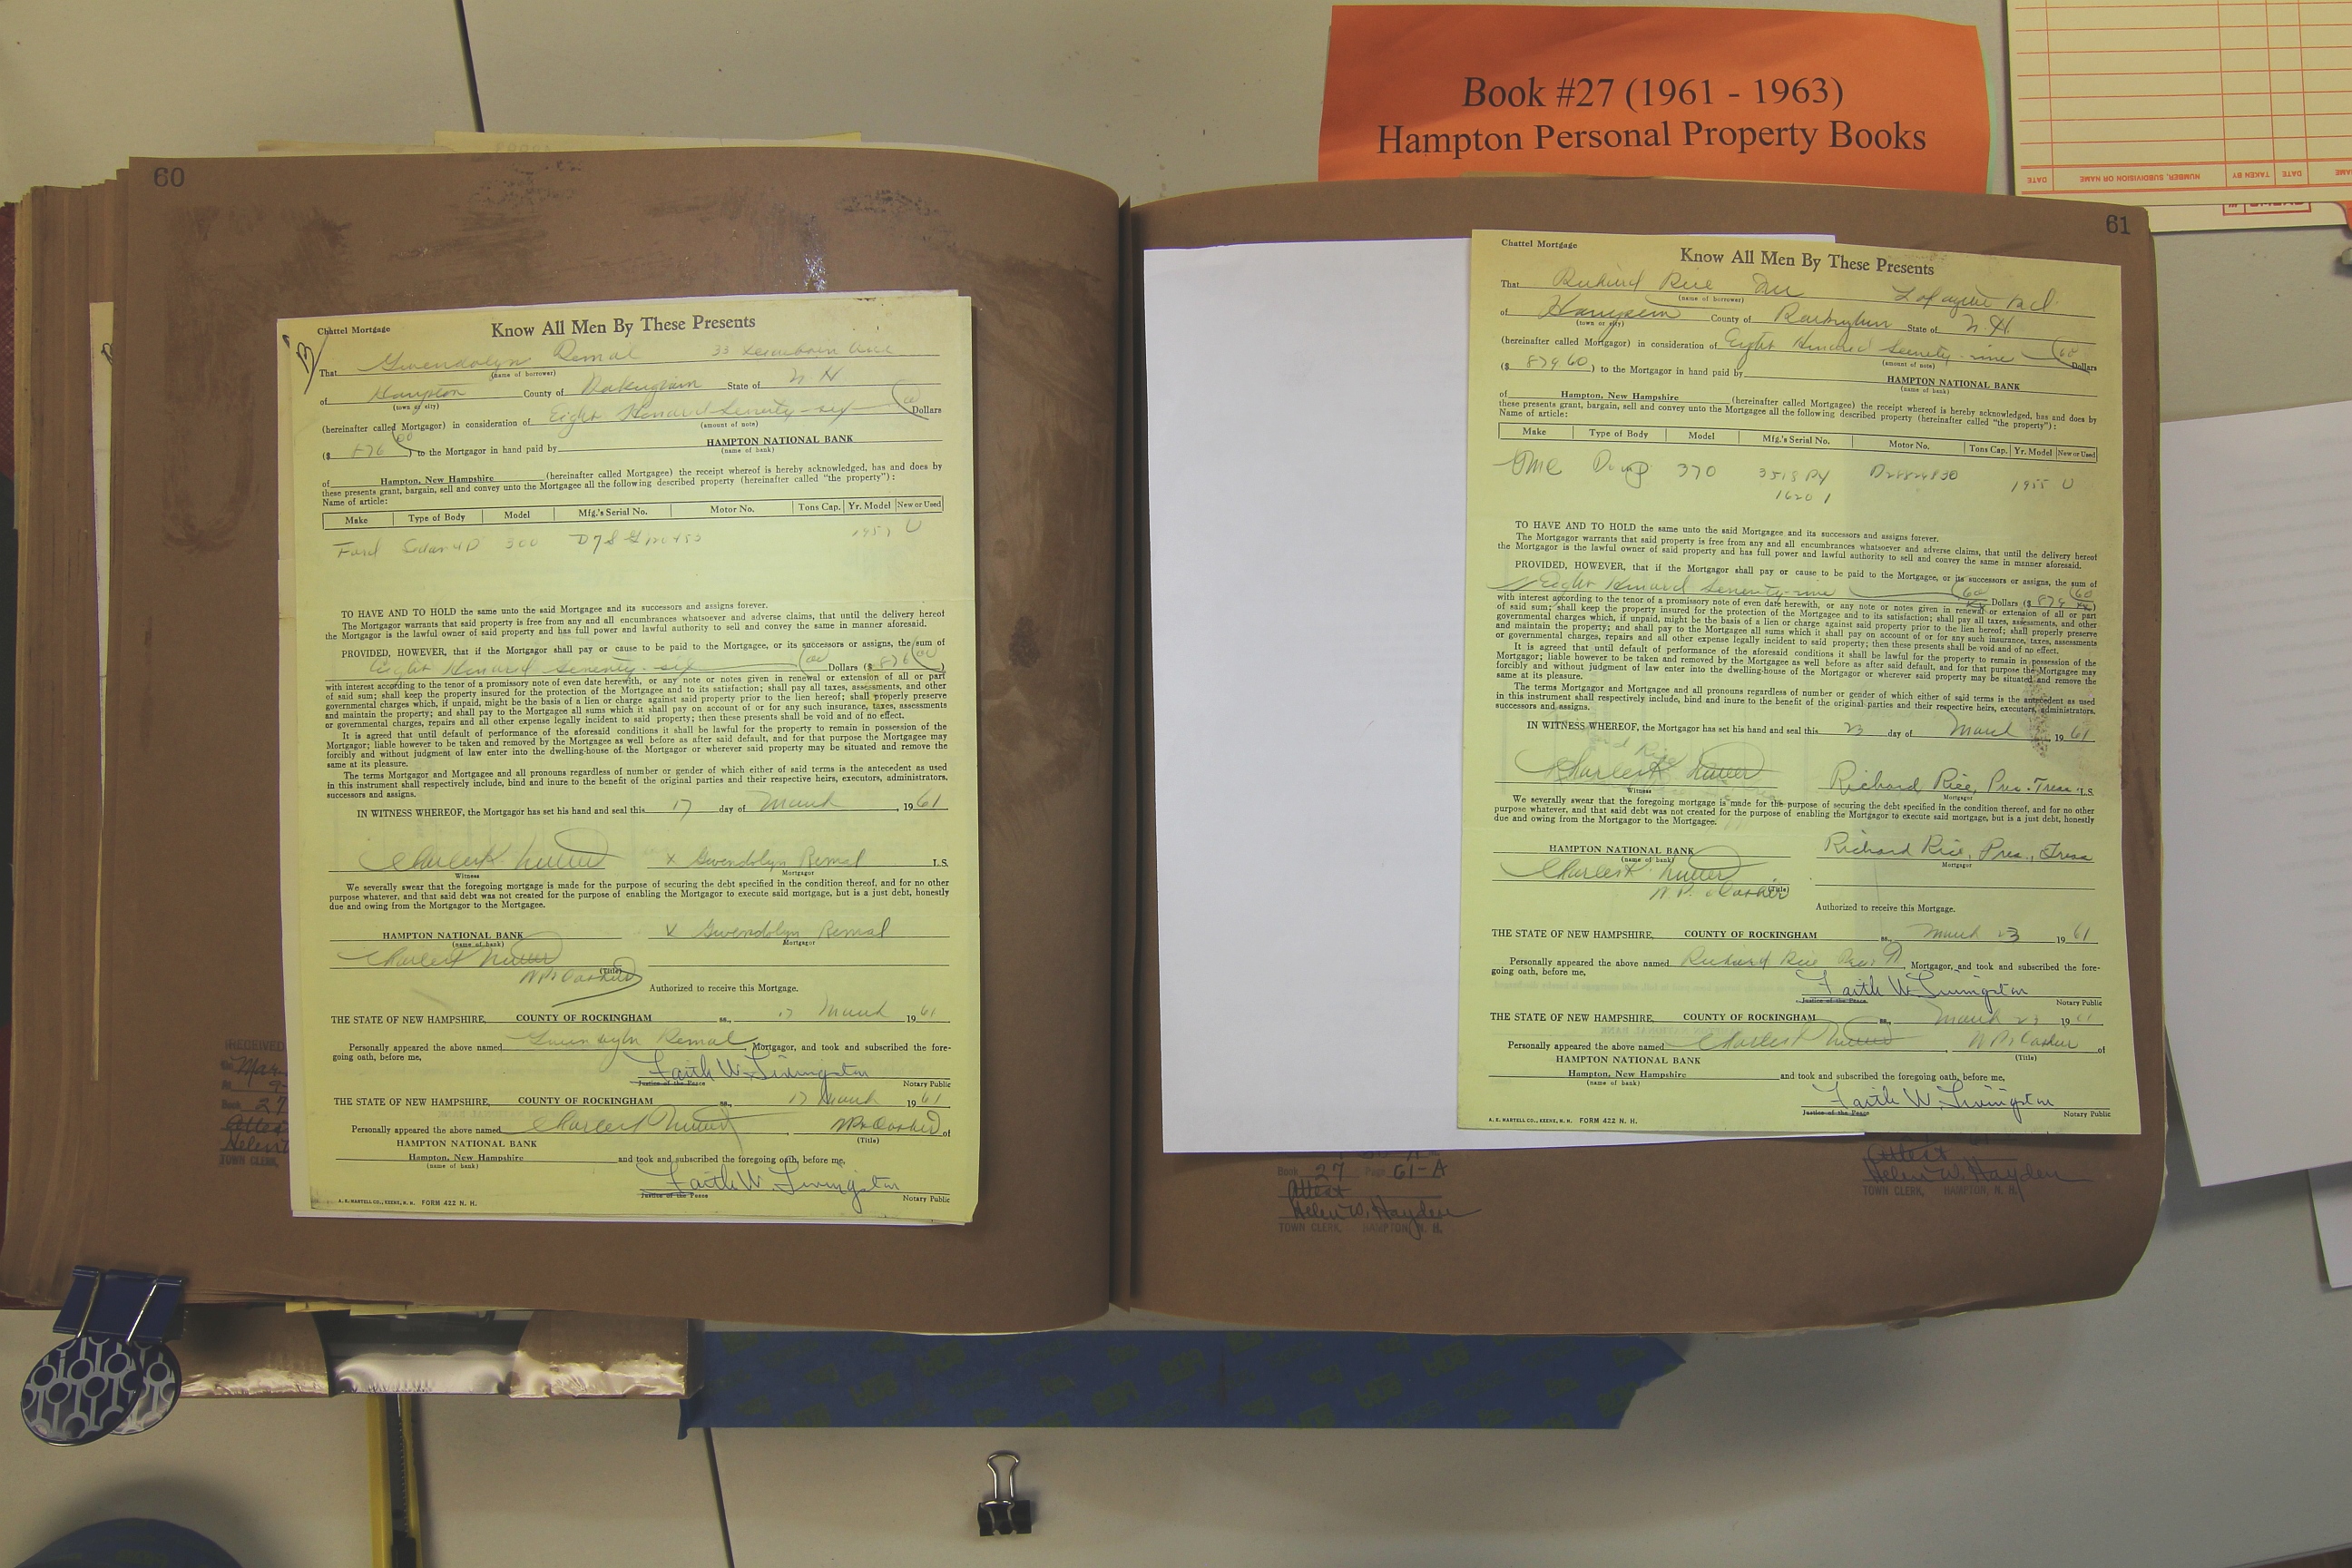 Book #27 (1961 - 1963)
Hampton Personal Property Books
NUMBER, SUBDIVISION OR NAME TAKEN BY DATE
60
Chattel Mortgage
Know All Men By These Presents
That Gwendolyn Remal 33 Ave
(name of borrower)
of Hampton County of Rockingham State of N. H.
(town or city)
(hereinafter called Mortgagor) in consideration of Eight Hundred Seventy-six 00 Dollars
(amount of note)
($ 876 00 ) to the Mortgagor in hand paid by HAMPTON NATIONAL BANK
(name of bank)
of Hampton, New Hampshire (hereinafter called Mortgagee) the receipt whereof is hereby acknowledged, has and does by
these presents grant, bargain, sell and convey unto the Mortgagee all the following described property (hereinafter called "the property"):
Name of article:
Make Type of Body Model Mfg.'s Serial No. Motor No. Tons Cap. Yr. Model New or Used
Ford Sedan 4D 300 1957 U
TO HAVE AND TO HOLD the same unto the said Mortgagee and its successors and assigns forever.
The Mortgagor warrants that said property is free from any and all encumbrances whatsoever and adverse claims, that until the delivery hereof
the Mortgagor is the lawful owner of said property and has full power and lawful authority to sell and convey the same in manner aforesaid.
PROVIDED, HOWEVER, that if the Mortgagor shall pay or cause to be paid to the Mortgagee, or its successors or assigns, the sum of
Eight Hundred Seventy-six 00 Dollars ($ 876 00 )
with interest according to the tenor of a promissory note of even date herewith, or any note or notes given in renewal or extension of all or part
of said sum; shall keep the property insured for the protection of the Mortgagee and to its satisfaction; shall pay all taxes, assessments, and other
governmental charges which, if unpaid, might be the basis of a lien or charge against said property prior to the lien hereof; shall properly preserve
and maintain the property; and shall pay to the Mortgagee all sums which it shall pay on account of or for any such insurance, taxes, assessments
or governmental charges, repairs and all other expense legally incident to said property; then these presents shall be void and of no effect.
It is agreed that until default of performance of the aforesaid conditions it shall be lawful for the property to remain in possession of the
Mortgagor; liable however to be taken and removed by the Mortgagee as well before as after said default, and for that purpose the Mortgagee may
forcibly and without judgment of law enter into the dwelling-house of the Mortgagor or wherever said property may be situated and remove the
same at its pleasure.
The terms Mortgagor and Mortgagee and all pronouns regardless of number or gender of which either of said terms is the antecedent as used
in this instrument shall respectively include, bind and inure to the benefit of the original parties and their respective heirs, executors, administrators,
successors and assigns.
IN WITNESS WHEREOF, the Mortgagor has set his hand and seal this 17 day of March, 1961
x Gwendolyn Remal L.S.
Witness Mortgagor
We severally swear that the foregoing mortgage is made for the purpose of securing the debt specified in the condition thereof, and for no other
purpose whatever, and that said debt was not created for the purpose of enabling the Mortgagor to execute said mortgage, but is a just debt, honestly
due and owing from the Mortgagor to the Mortgagee.
HAMPTON NATIONAL BANK x Gwendolyn Remal
(name of bank) Mortgagor
(Title)
Authorized to receive this Mortgage.
THE STATE OF NEW HAMPSHIRE, COUNTY OF ROCKINGHAM ss., 17 March 1961
Personally appeared the above named Gwendolyn Remal, Mortgagor, and took and subscribed the fore-
going oath, before me,
Faith W. Livingston
Justice of the Peace Notary Public
THE STATE OF NEW HAMPSHIRE, COUNTY OF ROCKINGHAM ss., 17 March 1961
Personally appeared the above named , V.P. Cashier of
(Title)
HAMPTON NATIONAL BANK
Hampton, New Hampshire and took and subscribed the foregoing oath, before me,
(name of bank)
Faith W. Livingston
Justice of the Peace Notary Public
A. E. MARTELL CO., KEENE, N. H. FORM 422 N. H.
RECEIVED
Mar
9-
Book 27
Attest
Helen
TOWN CLERK,
61
Chattel Mortgage
Know All Men By These Presents
That Richard Rice Inc Lafayette Rd.
(name of borrower)
of Hampton County of Rockingham State of N. H.
(town or city)
(hereinafter called Mortgagor) in consideration of Eight Hundred Seventy-nine 60 Dollars
(amount of note)
($ 879 60 ) to the Mortgagor in hand paid by HAMPTON NATIONAL BANK
(name of bank)
of Hampton, New Hampshire (hereinafter called Mortgagee) the receipt whereof is hereby acknowledged, has and does by
these presents grant, bargain, sell and convey unto the Mortgagee all the following described property (hereinafter called "the property"):
Name of article:
Make Type of Body Model Mfg.'s Serial No. Motor No. Tons Cap. Yr. Model New or Used
GMC Dump 370 1955 U
16201
TO HAVE AND TO HOLD the same unto the said Mortgagee and its successors and assigns forever.
The Mortgagor warrants that said property is free from any and all encumbrances whatsoever and adverse claims, that until the delivery hereof
the Mortgagor is the lawful owner of said property and has full power and lawful authority to sell and convey the same in manner aforesaid.
PROVIDED, HOWEVER, that if the Mortgagor shall pay or cause to be paid to the Mortgagee, or its successors or assigns, the sum of
Eight Hundred Seventy-nine 60 Dollars ($ 879 60 )
with interest according to the tenor of a promissory note of even date herewith, or any note or notes given in renewal or extension of all or part
of said sum; shall keep the property insured for the protection of the Mortgagee and to its satisfaction; shall pay all taxes, assessments, and other
governmental charges which, if unpaid, might be the basis of a lien or charge against said property prior to the lien hereof; shall properly preserve
and maintain the property; and shall pay to the Mortgagee all sums which it shall pay on account of or for any such insurance, taxes, assessments
or governmental charges, repairs and all other expense legally incident to said property; then these presents shall be void and of no effect.
It is agreed that until default of performance of the aforesaid conditions it shall be lawful for the property to remain in possession of the
Mortgagor; liable however to be taken and removed by the Mortgagee as well before as after said default, and for that purpose the Mortgagee may
forcibly and without judgment of law enter into the dwelling-house of the Mortgagor or wherever said property may be situated and remove the
same at its pleasure.
The terms Mortgagor and Mortgagee and all pronouns regardless of number or gender of which either of said terms is the antecedent as used
in this instrument shall respectively include, bind and inure to the benefit of the original parties and their respective heirs, executors, administrators,
successors and assigns.
IN WITNESS WHEREOF, the Mortgagor has set his hand and seal this 23 day of March 1961
Richard Rice, Pres.-Treas. L.S.
Witness Mortgagor
We severally swear that the foregoing mortgage is made for the purpose of securing the debt specified in the condition thereof, and for no other
purpose whatever, and that said debt was not created for the purpose of enabling the Mortgagor to execute said mortgage, but is a just debt, honestly
due and owing from the Mortgagor to the Mortgagee.
HAMPTON NATIONAL BANK Richard Rice, Pres., Treas
(name of bank) Mortgagor
V. P. Cashier (Title)
Authorized to receive this Mortgage.
THE STATE OF NEW HAMPSHIRE, COUNTY OF ROCKINGHAM ss., March 23 1961
Personally appeared the above named Richard Rice Pres, Mortgagor, and took and subscribed the fore-
going oath, before me,
Faith W. Livingston
Justice of the Peace Notary Public
THE STATE OF NEW HAMPSHIRE, COUNTY OF ROCKINGHAM ss., March 23 1961
Personally appeared the above named , V P Cashier of
(Title)
HAMPTON NATIONAL BANK
Hampton, New Hampshire and took and subscribed the foregoing oath, before me,
(name of bank)
Faith W. Livingston
Justice of the Peace Notary Public
A. E. MARTELL CO., KEENE, N. H. FORM 422 N. H.
Book 27 Page 61-A
Attest
Helen W. Hayden
TOWN CLERK, HAMPTON, N. H.
Attest
Helen W. Hayden
TOWN CLERK, HAMPTON, N. H.